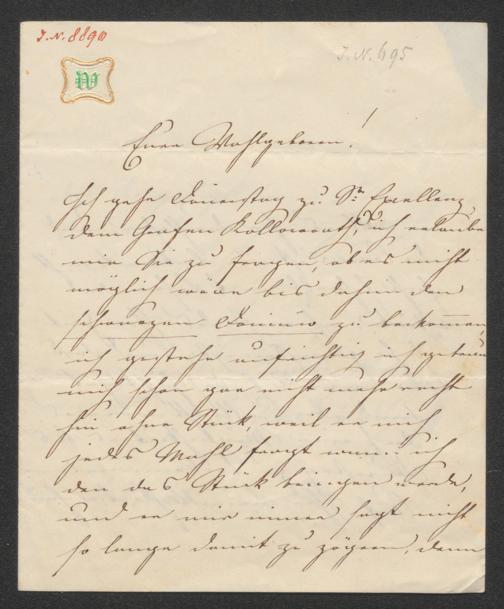 J. N. 8890
J. N. 695
W
Euer Wohlgeboren!
Ich gehe Donnerstag zu Sr. Excellenz
dem Grafen Kollowrath, ich erlaube
mir Sie zu fragen, ob es nicht
möglich wäre bis dahin den
schwarzen Domino zu bekommen,
ich gestehe aufrichtig ich getraue
mich schon gar nicht mehr recht
hin ohne Stück, weil er mich
jedes Mahl fragt wann ich
den das Stück bringen werde,
und er mir immer sagt nicht
so lange damit zu zögern, denn